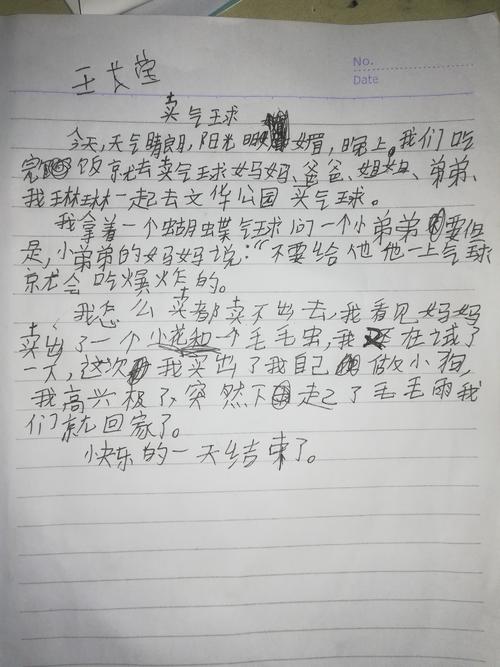 No.
Date
王长莹
卖气球
今天,天气晴朗,阳光明媚,晚上,我们吃
完饭就去卖气球妈妈、爸爸、姐姐、弟弟、
我琳琳一起去文华公园卖气球。
我拿着一个蝴蝶气球问一个小弟弟要但
是,小弟弟的妈妈说:“不要给他他一上气球
就会吃爆炸的。
我怎么卖都卖不出去,我看见妈妈
卖出了一个小花和一个毛毛虫,我在试了
一次,这次我卖出了我自己做小狗,
我高兴极了,突然下起了毛毛雨我
们就回家了。
快乐的一天结束了。